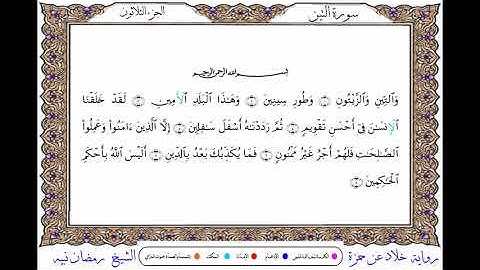 سورة التين
الجزء الثلاثون
بسم الله الرحمن الرحيم
وَالتِّينِ وَالزَّيْتُونِ ۝ وَطُورِ سِينِينَ ۝ وَهَٰذَا الْبَلَدِ الْأَمِينِ ۝ لَقَدْ خَلَقْنَا
الْإِنسَٰنَ فِي أَحْسَنِ تَقْوِيمٍ ۝ ثُمَّ رَدَدْنَٰهُ أَسْفَلَ سَٰفِلِينَ ۝ إِلَّا الَّذِينَ ءَامَنُوا وَعَمِلُوا
الصَّٰلِحَٰتِ فَلَهُمْ أَجْرٌ غَيْرُ مَمْنُونٍ ۝ فَمَا يُكَذِّبُكَ بَعْدُ بِالدِّينِ ۝ أَلَيْسَ اللَّهُ بِأَحْكَمِ
الْحَٰكِمِينَ ۝
رواية خلاد عن حمزة
السكت
الإمالة
الإدغام
الشيخ رمضان نبيه